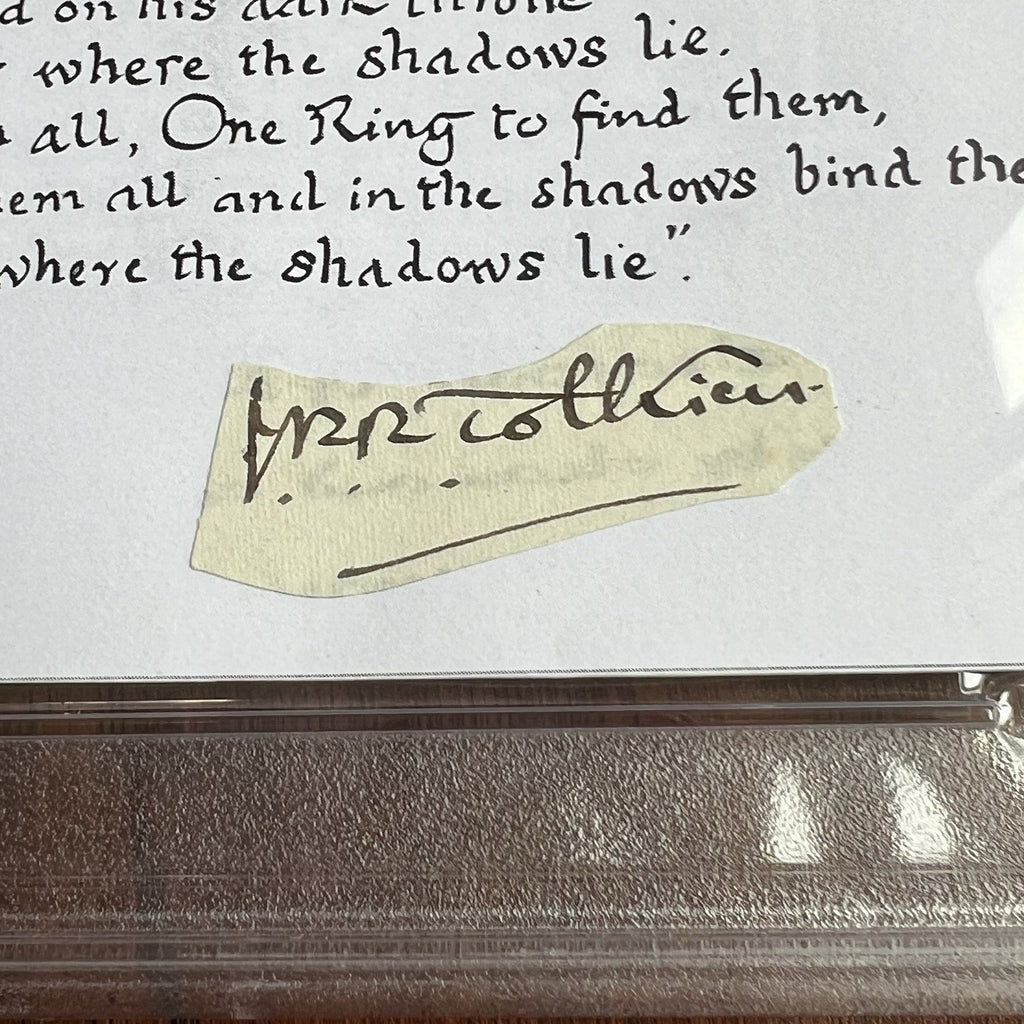 on his dark throne
where the shadows lie.
all, One Ring to find them,
em all and in the shadows bind the
where the shadows lie".
JRR Tolkien